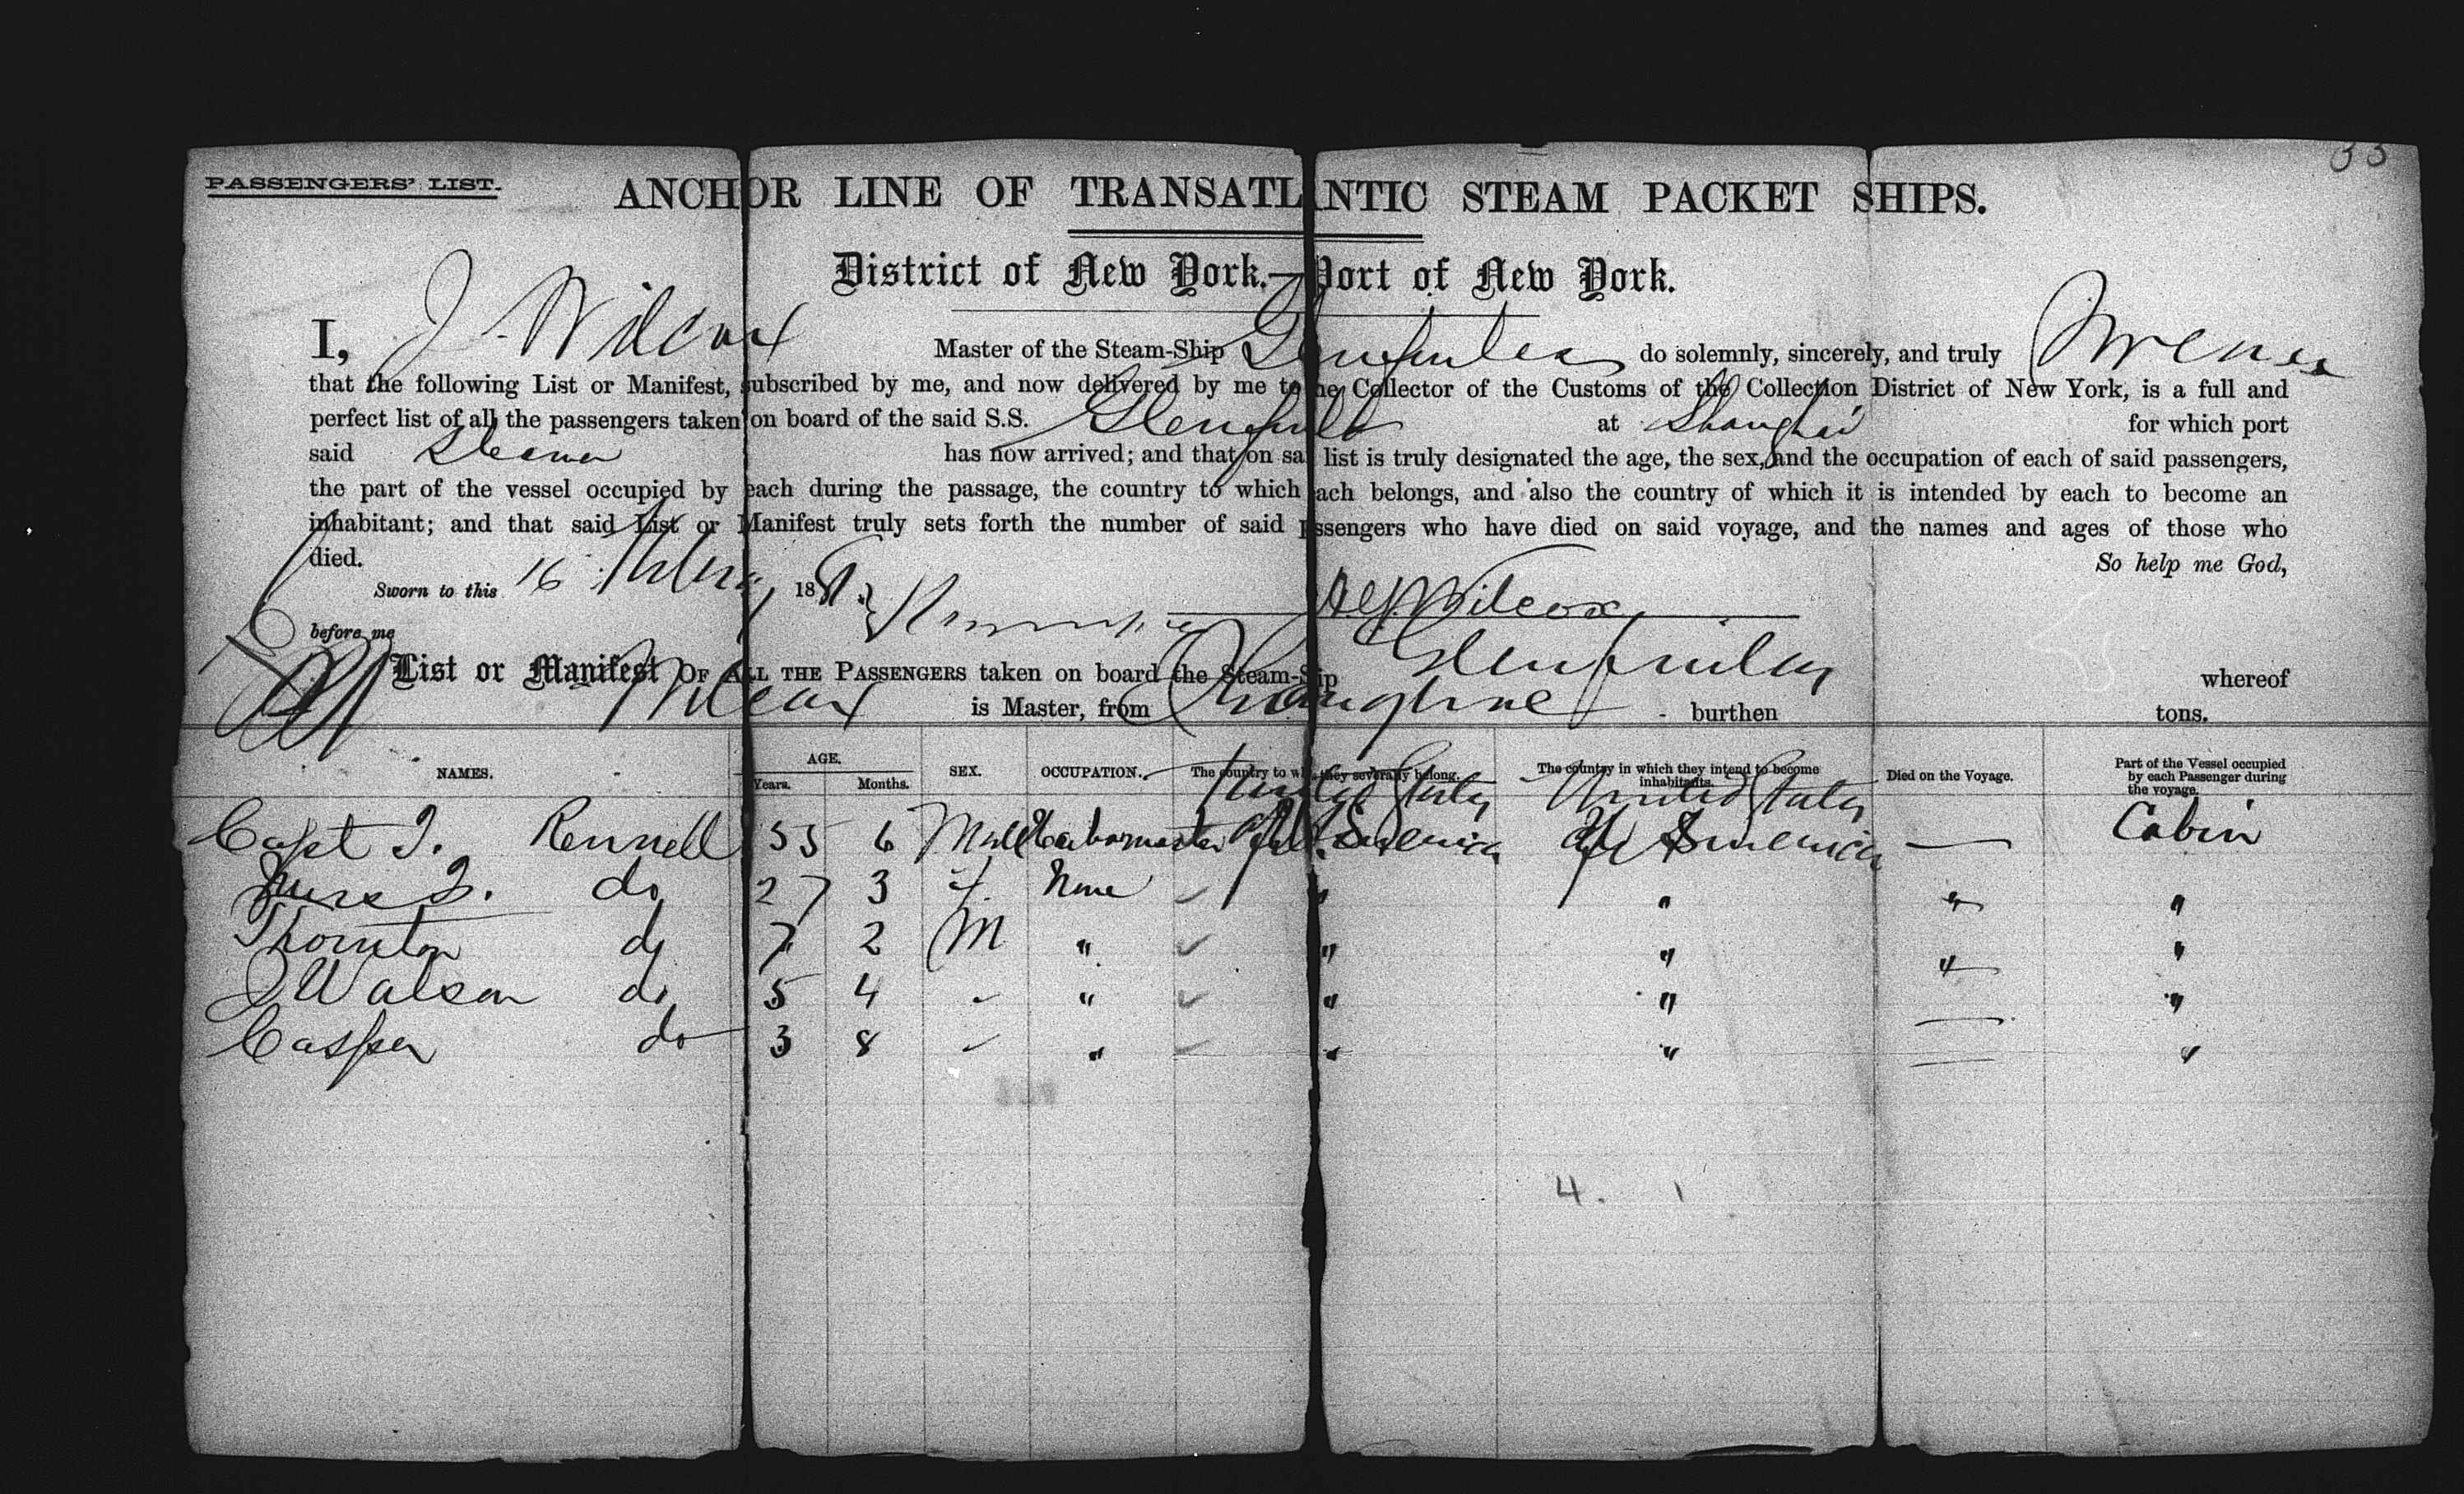 33
PASSENGERS' LIST.
ANCHOR LINE OF TRANSATLANTIC STEAM PACKET SHIPS.
District of New York.—Port of New York.
I, J Wilcox Master of the Steam-Ship do solemnly, sincerely, and truly
that the following List or Manifest, subscribed by me, and now delivered by me to the Collector of the Customs of the Collection District of New York, is a full and
perfect list of all the passengers taken on board of the said S.S. at Shanghai for which port
said Steamer has now arrived; and that on said list is truly designated the age, the sex, and the occupation of each of said passengers,
the part of the vessel occupied by each during the passage, the country to which each belongs, and also the country of which it is intended by each to become an
inhabitant; and that said List or Manifest truly sets forth the number of said passengers who have died on said voyage, and the names and ages of those who
died. So help me God,
Sworn to this 16 188 Wilcox
before me
List or Manifest OF ALL THE PASSENGERS taken on board the Steam-Ship whereof
Wilcox is Master, from burthen tons.
NAMES. AGE. Years. Months. SEX. OCCUPATION. The country to which they severally belong. The country in which they intend to become inhabitants. Died on the Voyage. Part of the Vessel occupied by each Passenger during the voyage.
United States United States
Capt J. Rennell 55 6 Male N. America N. America — Cabin
Mrs J. do 27 3 f. None " " " "
Thornton do 7 2 M " " " " "
J Watson do 5 4 " " " — "
Casper do 3 8 " " " — "
4. 1